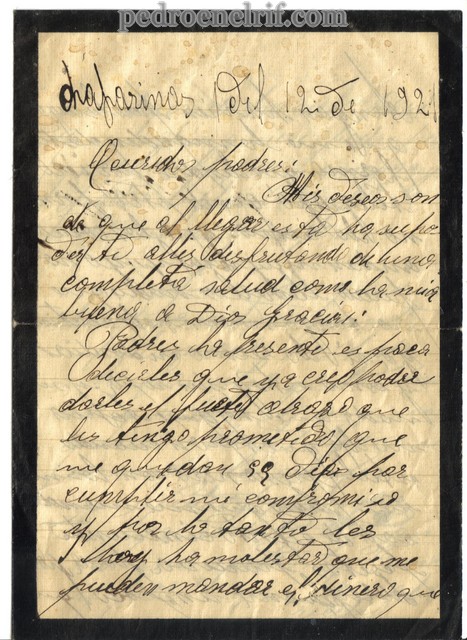 pedroenelrif.com
chafarinas 1 del 12 de 1921
Queridos padres:
Mis deseos son
de que al llegar esta ha su po
der
completa salud como ha mia
buena a Dios Gracias:
Padres ha presente es para
decirles que ya creo poder
darles el abrazo que
les tengo prometido que
me quedan 29 dias por
cumplir me compromiso
y por ha tanto les
ha molestar que me
pueden mandar el dinero que